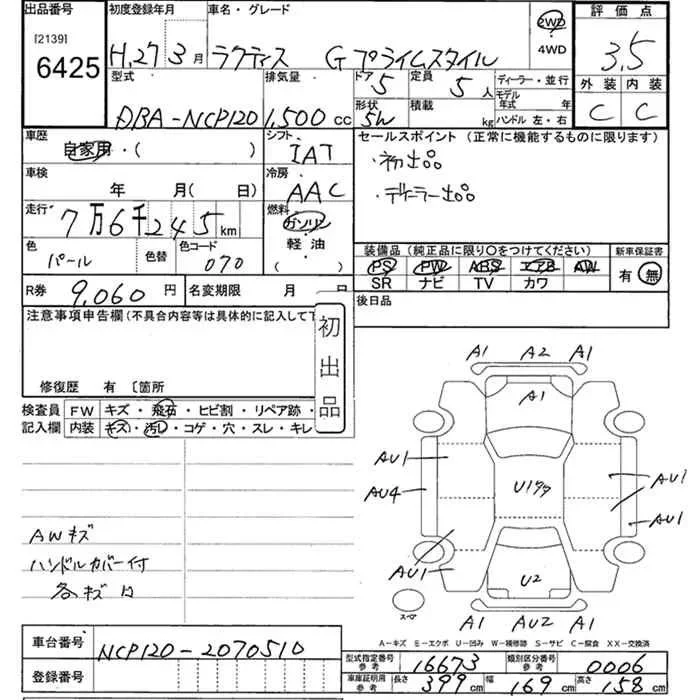 出品番号
[2139]
6425
初度登録年月
H.27 3月
車名・グレード
ラクティス Gプライムスタイル
2WD
4WD
評価点
3.5
外装 内装
C C
型式
DBA-NCP120
排気量
1,500 cc
ドア 5
形状 5W
定員 5人
積載 kg
ディーラー・並行
モデル年式 年
ハンドル 左・右
車歴
自家用・( )
シフト
IAT
セールスポイント (正常に機能するものに限ります)
・初出品
・デーラー出品
車検
年 月( 日)
冷房
AAC
走行
7万6千245km
燃料
ガソリン
軽油
( )
色
パール
色替
色コード
070
装備品 (純正品に限り○をつけてください)
PS PW ABS エアB AW
SR ナビ TV カワ
新車保証書
有 無
R券 9,060円
名変期限 月 日
後日品
注意事項申告欄(不具合内容等は具体的に記入して下
初出品
修復歴 有 〔箇所
検査員
記入欄
FW キズ・飛石・ヒビ割・リペア跡・
内装 キズ・汚レ・コゲ・穴・スレ・キレ
AWキズ
ハンドルカバー付
各キズ
A1 A2 A1
A1
AU1
AU4
U1
AU1
AU1
AU1
U2
スペア
A1 AU2 A1
A-キズ E-エクボ U-凹み W-補修跡 S-サビ C-腐食 XX-交換済
車台番号
NCP120-2070510
登録番号
型式指定番号
参考
16673
類別区分番号
参考
0006
車庫証明用
参考
長さ 399cm
幅 169cm
高さ 158cm